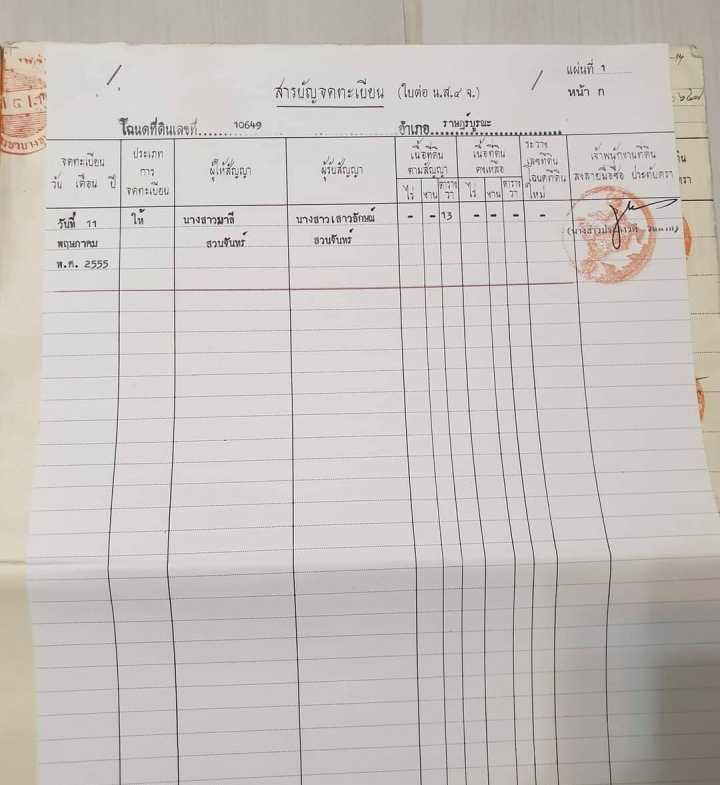 แผ่นที่ ๑
สารบัญจดทะเบียน (ใบต่อ น.ส.๔ จ.)
หน้า ก
โฉนดที่ดินเลขที่ 10649 อำเภอ ราษฎร์บูรณะ
จดทะเบียน
วัน เดือน ปี
ประเภท
การ
จดทะเบียน
ผู้ให้สัญญา
ผู้รับสัญญา
เนื้อที่ดิน
ตามสัญญา
ไร่ งาน ตาราง
วา
เนื้อที่ดิน
คงเหลือ
ไร่ งาน ตาราง
วา
ระวาง
เลขที่ดิน
โฉนดที่ดิน
ใหม่
เจ้าพนักงานที่ดิน
ลงลายมือชื่อ ประทับตรา
วันที่ 11 ให้ นางสาวมาลี นางสาวเสาวลักษณ์ - - 13 - - - -
พฤษภาคม สวนจันทร์ สวนจันทร์
พ.ศ. 2555